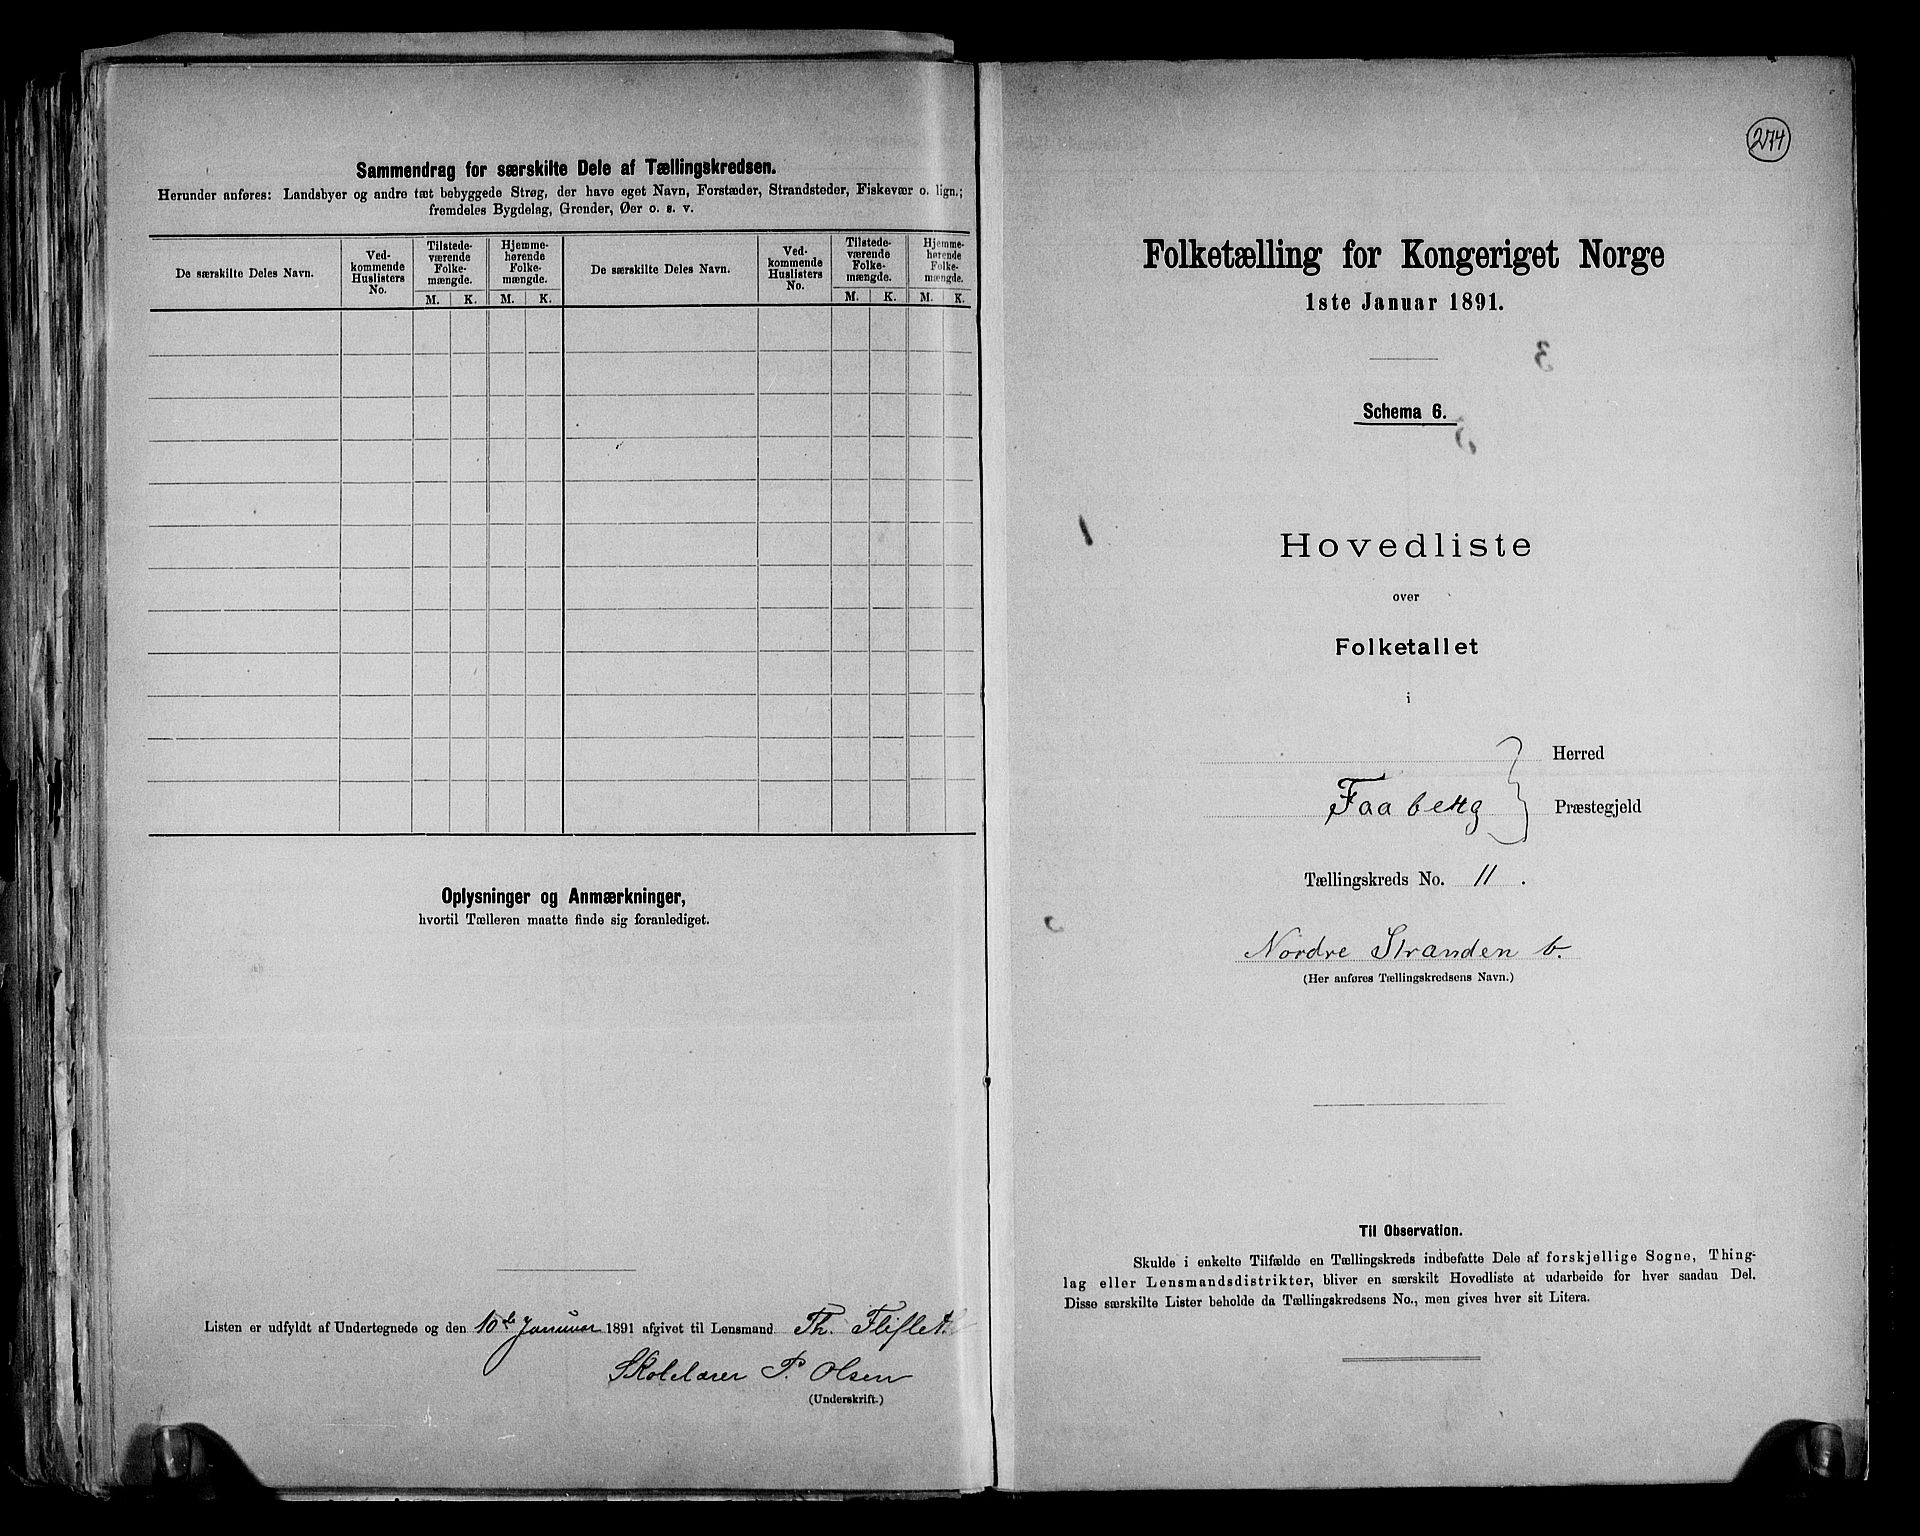 Sammendrag for særskilte Dele af Tællingskredsen.
Herunder anføres: Landsbyer og andre tæt bebyggede Strøg, der have eget Navn, Forstæder, Strandsteder, Fiskevær o. lign.;
fremdeles Bygdelag, Grender, Øer o. s. v.
De særskilte Deles Navn.
Ved-
kommende
Huslisters
No.
Tilstede-
værende
Folke-
mængde.
Hjemme-
hørende
Folke-
mængde.
M. K. M. K.
De særskilte Deles Navn.
Ved-
kommende
Huslisters
No.
Tilstede-
værende
Folke-
mængde.
Hjemme-
hørende
Folke-
mængde.
M. K. M. K.
Oplysninger og Anmærkninger,
hvortil Tælleren maatte finde sig foranlediget.
Listen er udfyldt af Undertegnede og den 10de Januar 1891 afgivet til Lensmand Th. Fliflet
Skolelærer P. Olsen
(Underskrift.)
274
Folketælling for Kongeriget Norge
1ste Januar 1891.
Schema 6.
Hovedliste
over
Folketallet
i
Herred
Faaberg Præstegjeld
Tællingskreds No. 11.
Nordre Stranden b.
(Her anføres Tællingskredsens Navn.)
Til Observation.
Skulde i enkelte Tilfælde en Tællingskreds indbefatte Dele af forskjellige Sogne, Thing-
lag eller Lensmandsdistrikter, bliver en særskilt Hovedliste at udarbeide for hver saadan Del.
Disse særskilte Lister beholde da Tællingskredsens No., men gives hver sit Litera.